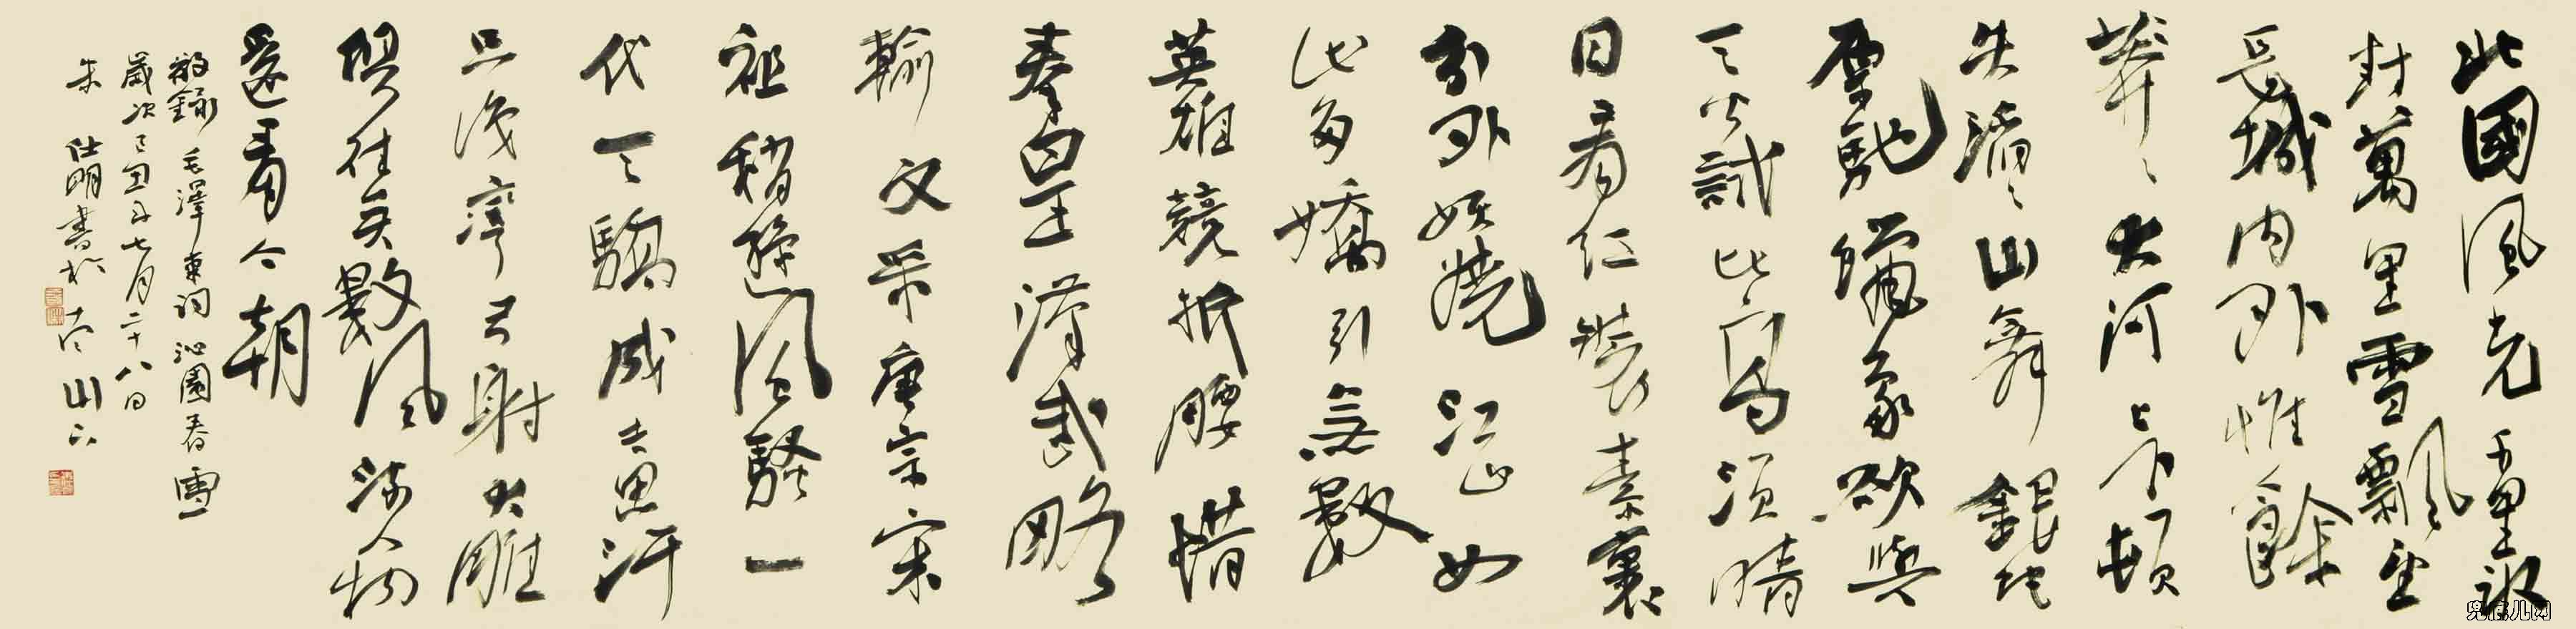 北國風光千里冰
封萬里雪飄望
長城內外惟餘
莽〻大河上下頓
失滔〻山舞銀蛇
原馳蠟象欲與
天公試比高須晴
日看红裝素裹
分外妖嬈江山如
此多嬌引無數
英雄競折腰惜
秦皇漢武略
輸文采唐宗宋
祖稍遜風騷一
代天驕成吉思汗
只識彎弓射大雕
俱往矣數風流人物
還看今朝
敬錄毛澤東詞沁園春雪
歲次己丑年七月二十八日
朱仕明書於山下